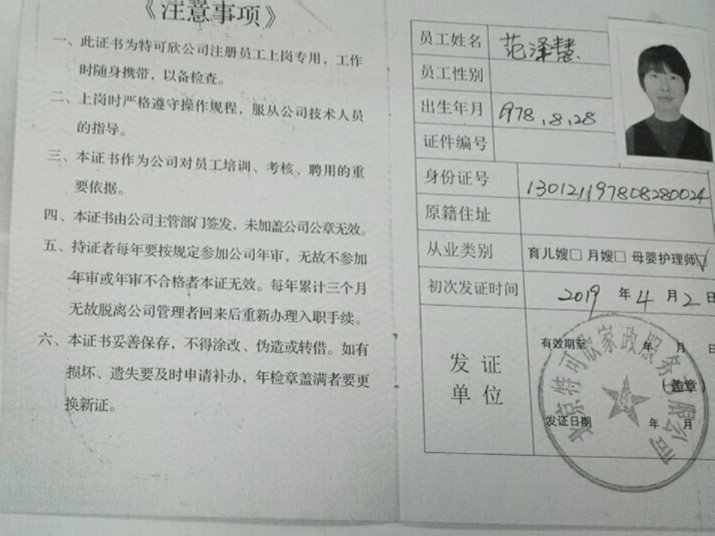 《注意事项》
一、此证书为特可欣公司注册员工上岗专用，工作
时随身携带，以备检查。
二、上岗时严格遵守操作规程，服从公司技术人员
的指导。
三、本证书作为公司对员工培训、考核、聘用的重
要依据。
四、本证书由公司主管部门签发，未加盖公司公章无效。
五、持证者每年要按规定参加公司年审，无故不参加
年审或年审不合格者本证无效。每年累计三个月
无故脱离公司管理者回来后重新办理入职手续。
六、本证书妥善保存，不得涂改、伪造或转借。如有
损坏、遗失要及时申请补办，年检章盖满者要更
换新证。
员工姓名 范泽慧
员工性别
出生年月 1978.8.28
证件编号
身份证号 130121197808280024
原籍住址
从业类别 育儿嫂□ 月嫂□ 母婴护理师☑
初次发证时间 2019 年 4 月 2 日
发证单位
有效期至 年 月 日
（盖章）
发证日期 年 月
北京特可欣家政服务有限公司